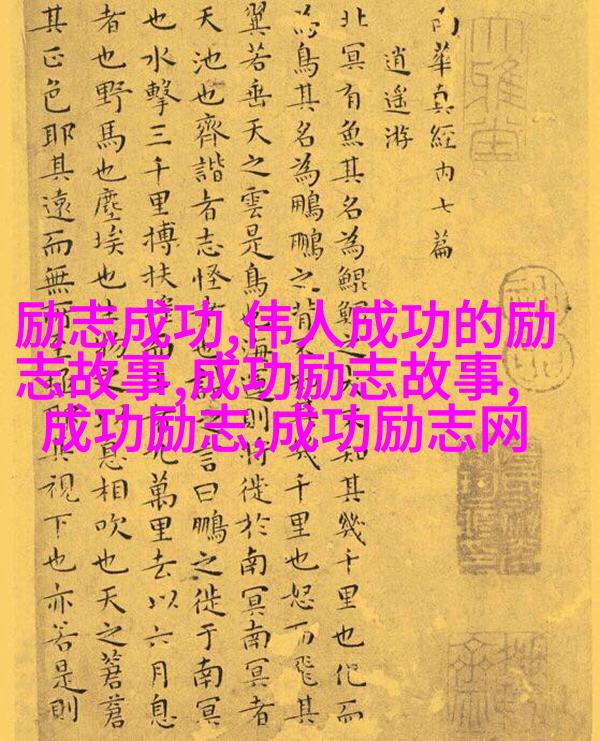 南華真經內七篇
逍遙游
北冥有魚其名為鯤鯤之大不知其幾千里也化而
為鳥其名為鵬鵬之背不知其幾千里也怒而飛其
翼若垂天之雲是鳥也海運則將徙於南冥南冥者
天池也齊諧者志怪者也諧之言曰鵬之徙于南冥
也水擊三千里搏扶搖而上者九萬里去以六月息
者也野馬也塵埃也生物之以息相吹也天之蒼蒼
其正色耶其遠而無所至極耶其視下也亦若是則
励志成功,伟人成功的励
志故事,成功励志故事,
成功励志,成功励志网